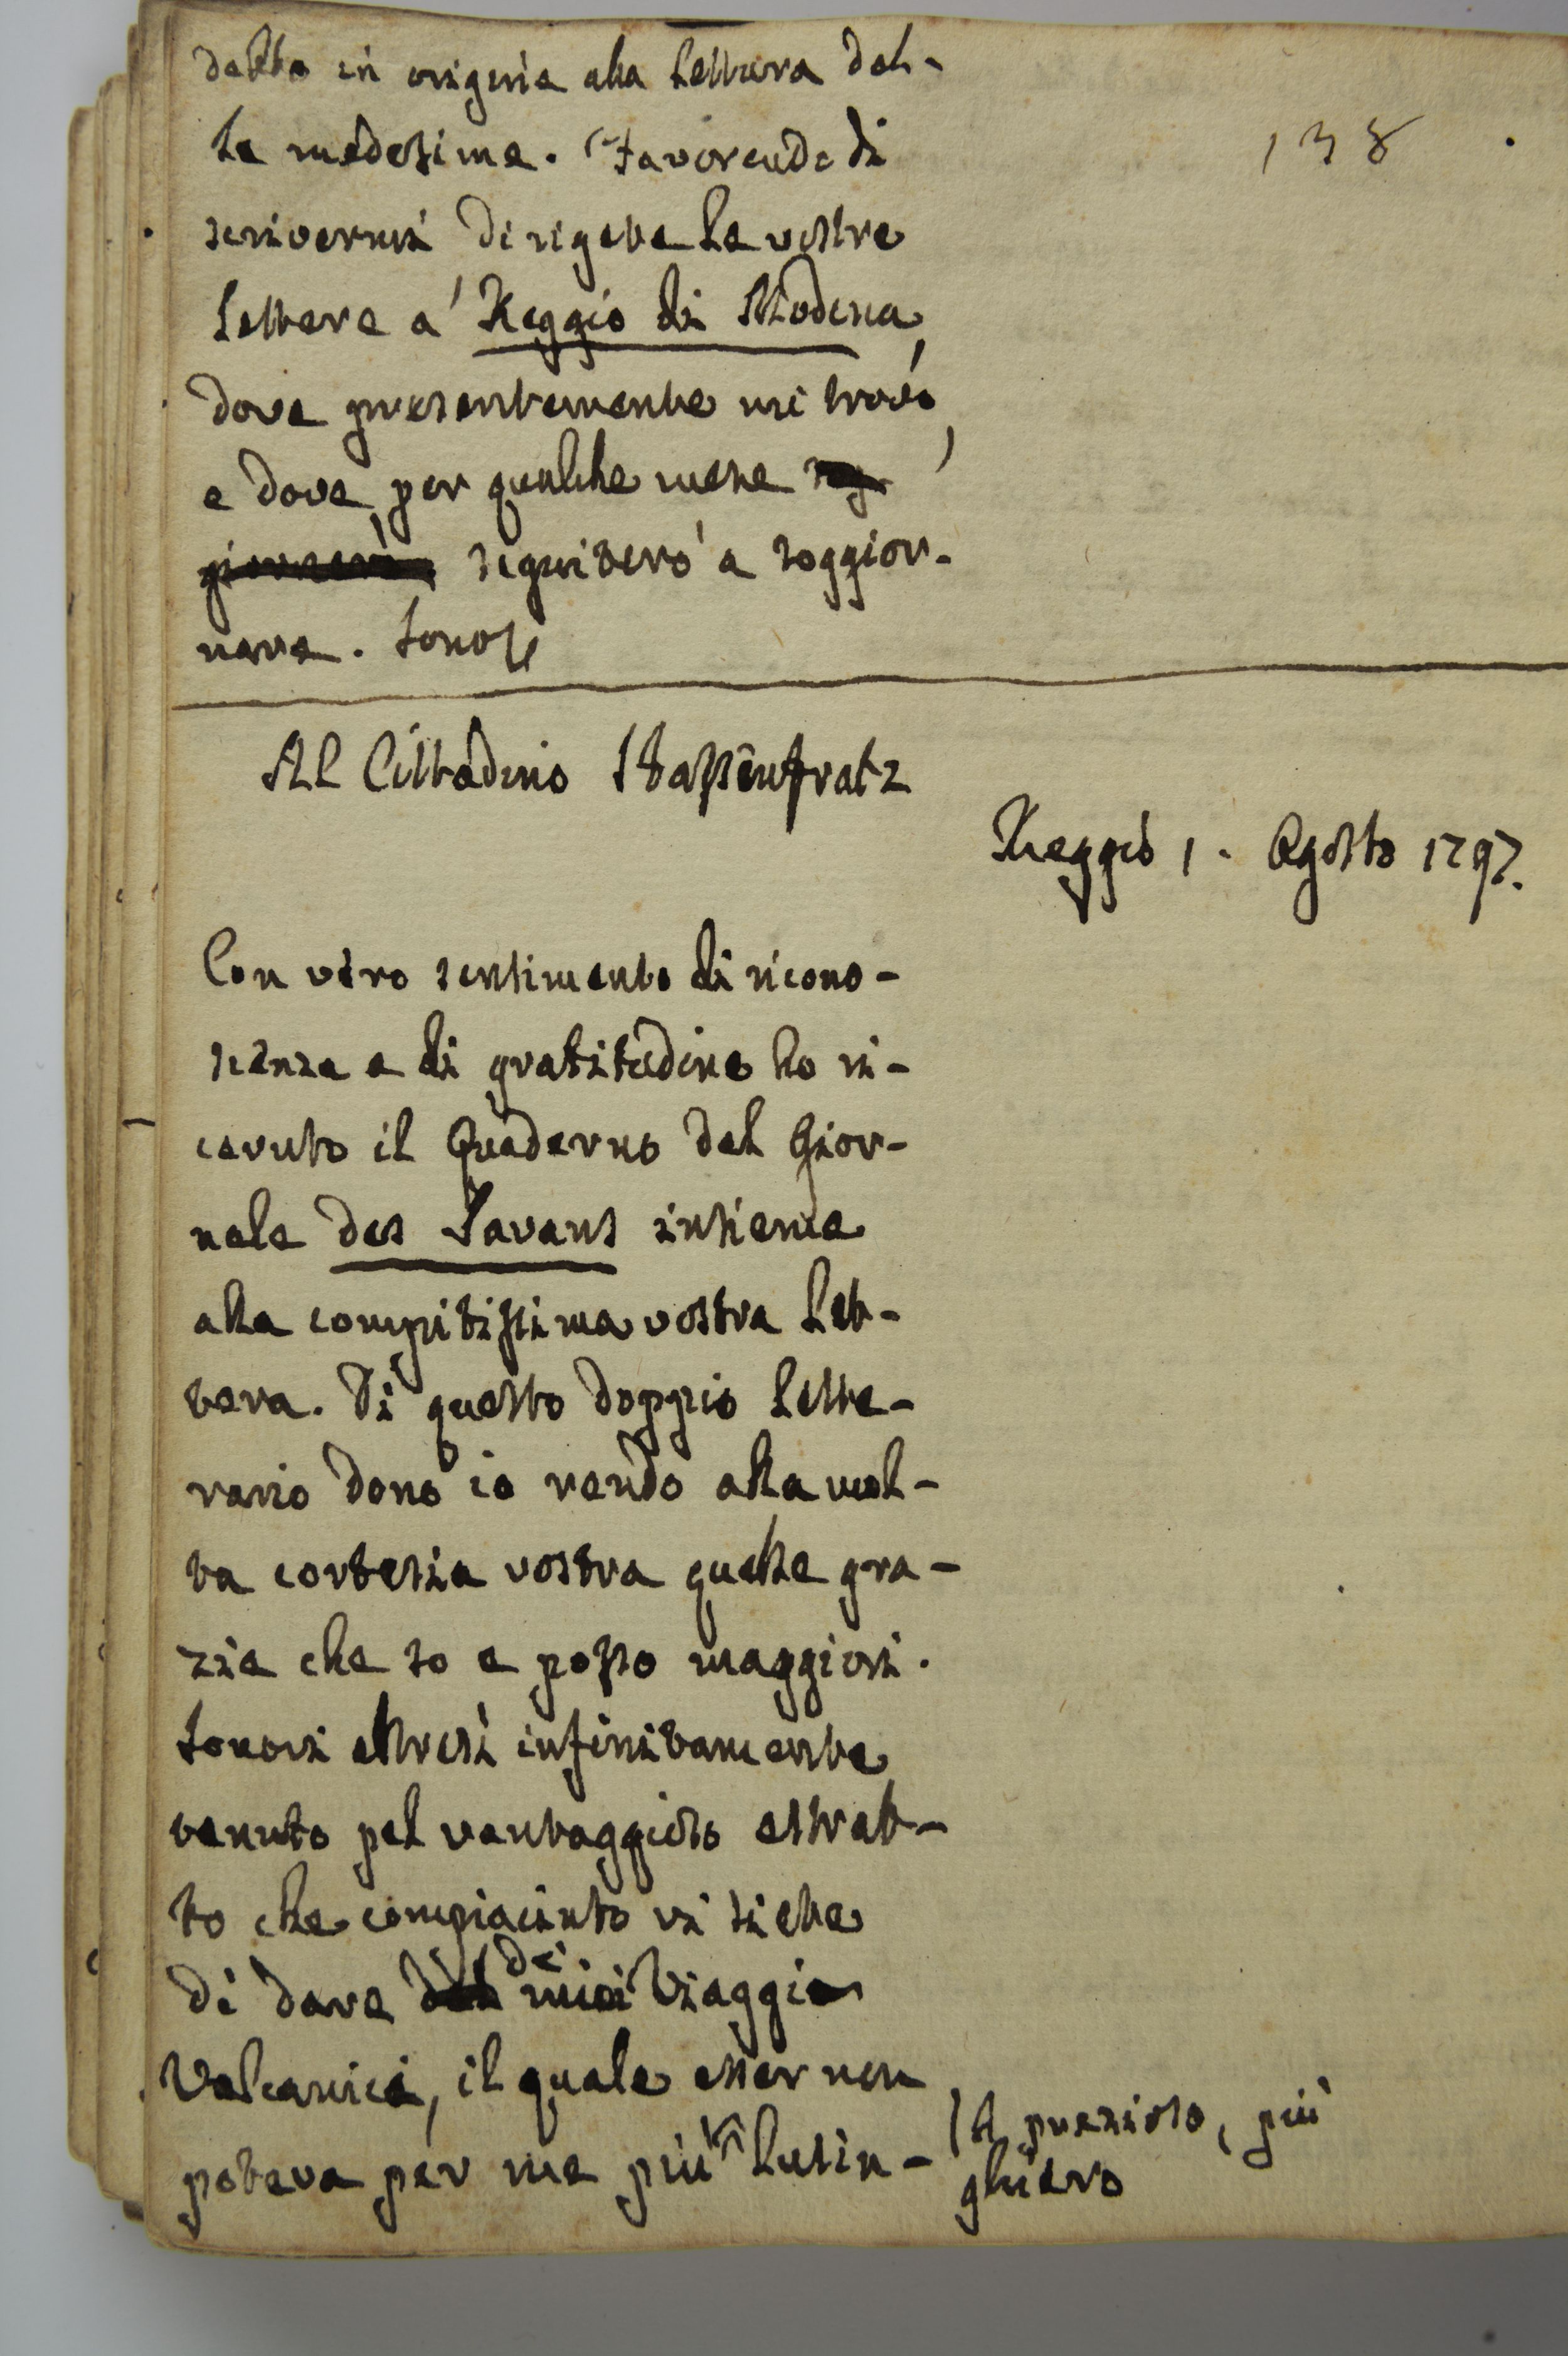 138
dabbo in origine alla lettura del-
le medesime. Favorendo di
scrivermi dirigete le vostre
lettere a' Reggio di Modena,
dove presentemente mi trovo,
e dove per qualche mese sog
giornerò, seguiterò a soggior-
nare. Sono
Al Cittadino Hassenfratz
Reggio 1. Agosto 1797.
Con vero sentimento di ricono-
scenza e di gratitudine ho ri-
cevuto il Quaderno del Gior-
nale des Savans insieme
alla compitissima vostra let-
tera. Di questo doppio lette-
rario dono io rendo alla mol-
ta cortesia vostra quelle gra-
zie che so e posso maggiori.
Sonovi altresì infinitamente
tenuto pel vantaggioso estrat-
to che compiaciuto vi siete
di dare del de' miei Viaggi
Vulcanici, il quale esser non
poteva per me più lusin-
prezioso, più
ghiero